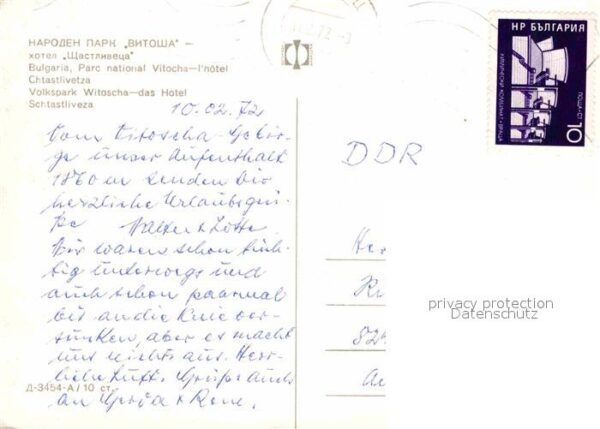 НАРОДЕН ПАРК „ВИТОША" —
хотел „Щастливеца"
Bulgaria, Parc national Vitocha—l'hôtel
Chtastlivetza
Volkspark Witoscha—das Hotel
Schtastliveza
10.02.72
Vom Vitoscha-Gebir-
ge unser Aufenthalt
1860 m senden Dir
herzliche Urlaubsgrü-
ße Walter + Lotte
Wir waren schon tüch-
tig unterwegs und
auch schon paarmal
bis an die Knie ver-
sunken, aber es macht
uns nichts aus. Herr-
liche Luft. Grüße auch
an + Rene.
Д-3454-А/10 ст.
НР БЪЛГАРИЯ
ПОЩА·СТ·
10
DDR
privacy protection
Datenschutz